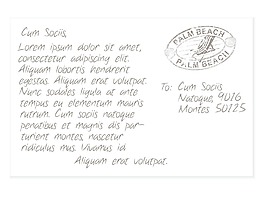 Cum Sociis,
Lorem ipsum dolor sit amet,
consectetur adipiscing elit.
Aliquam lobortis hendrerit
egestas. Aliquam erat volutpat.
Nunc sodales ligula at ante
tempus eu elementum mauris
rutrum. Cum sociis natoque
penatibus et magnis dis par-
turient montes, nascetur
ridiculus mus. Vivamus id
Aliquam erat volutpat.
PALM BEACH
PALM BEACH
To: Cum Sociis
Natoque, 9016
Montes 50125